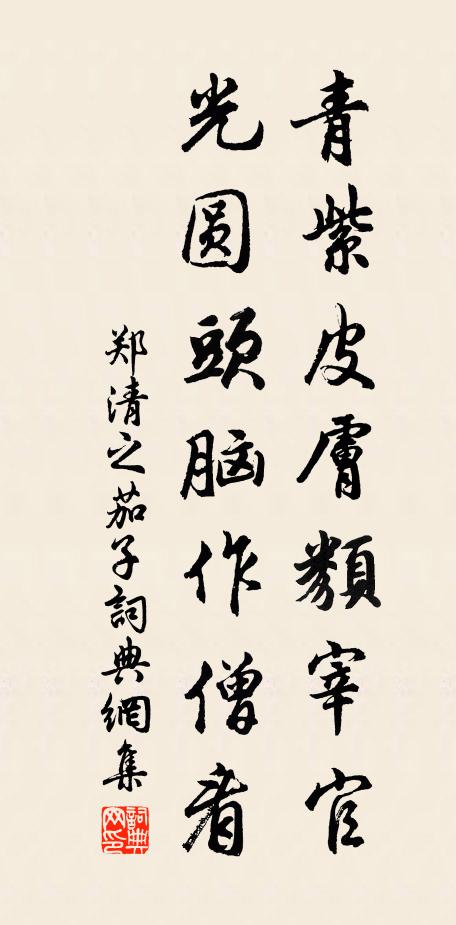 青紫皮膚類宰官
光圆頭脑作僧看
郑清之茄子詞典網集
詞典网印